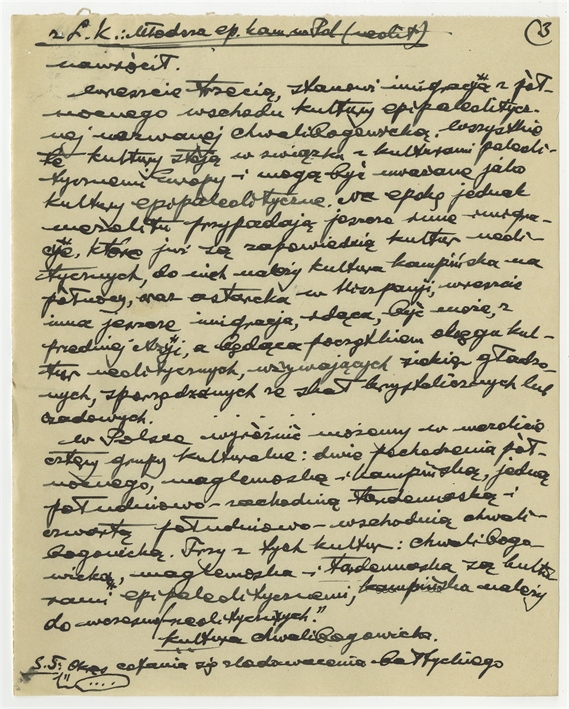 z L. K.: Młodsza ep. kam. w Pol (neolit) (3
nawrócił.
Wreszcie trzecią, stanowi imigracja z pół-
nocnego wschodu kultury epipaleolitycz-
nej nazwanej chwalibogowicką. Wszystkie
te kultury stoją w związku z kulturami paleoli-
tycznemi Europy i mogą być uważane jako
kultury epipaleolityczne. Na epokę jednak
mezolitu przypadają jeszcze inne imigra-
cje, które już są zapowiedzią kultur neoli-
tycznych, do nich należy kultura kampinska na
północy, oraz asturska w Hiszpanji, wreszcie
inna jeszcze imigracja, idąca, być może, z
przedniej Azji, a będąca początkiem okręgu kul-
tur neolitycznych, używających siekier gładzo-
nych, sporządzonych ze skał krystalicznych lub
osadowych.
W Polsce wyróżnić możemy w mezolicie
cztery grupy kulturalne: dwie pochodzenia pół-
nocnego, maglemoską i kampinską, jedną
południowo-zachodnią tardenoską i
czwartą południowo-wschodnią chwali-
bogowicką. Trzy z tych kultur: chwalibogo-
wicka, maglemoska i tardenoska są kultu-
rami epipaleolitycznemi, kampinska należy
do wczesno neolitycznych."
Kultura chwalibogowicka.
S. 5: Okres cofania się zlodowacenia bałtyckiego